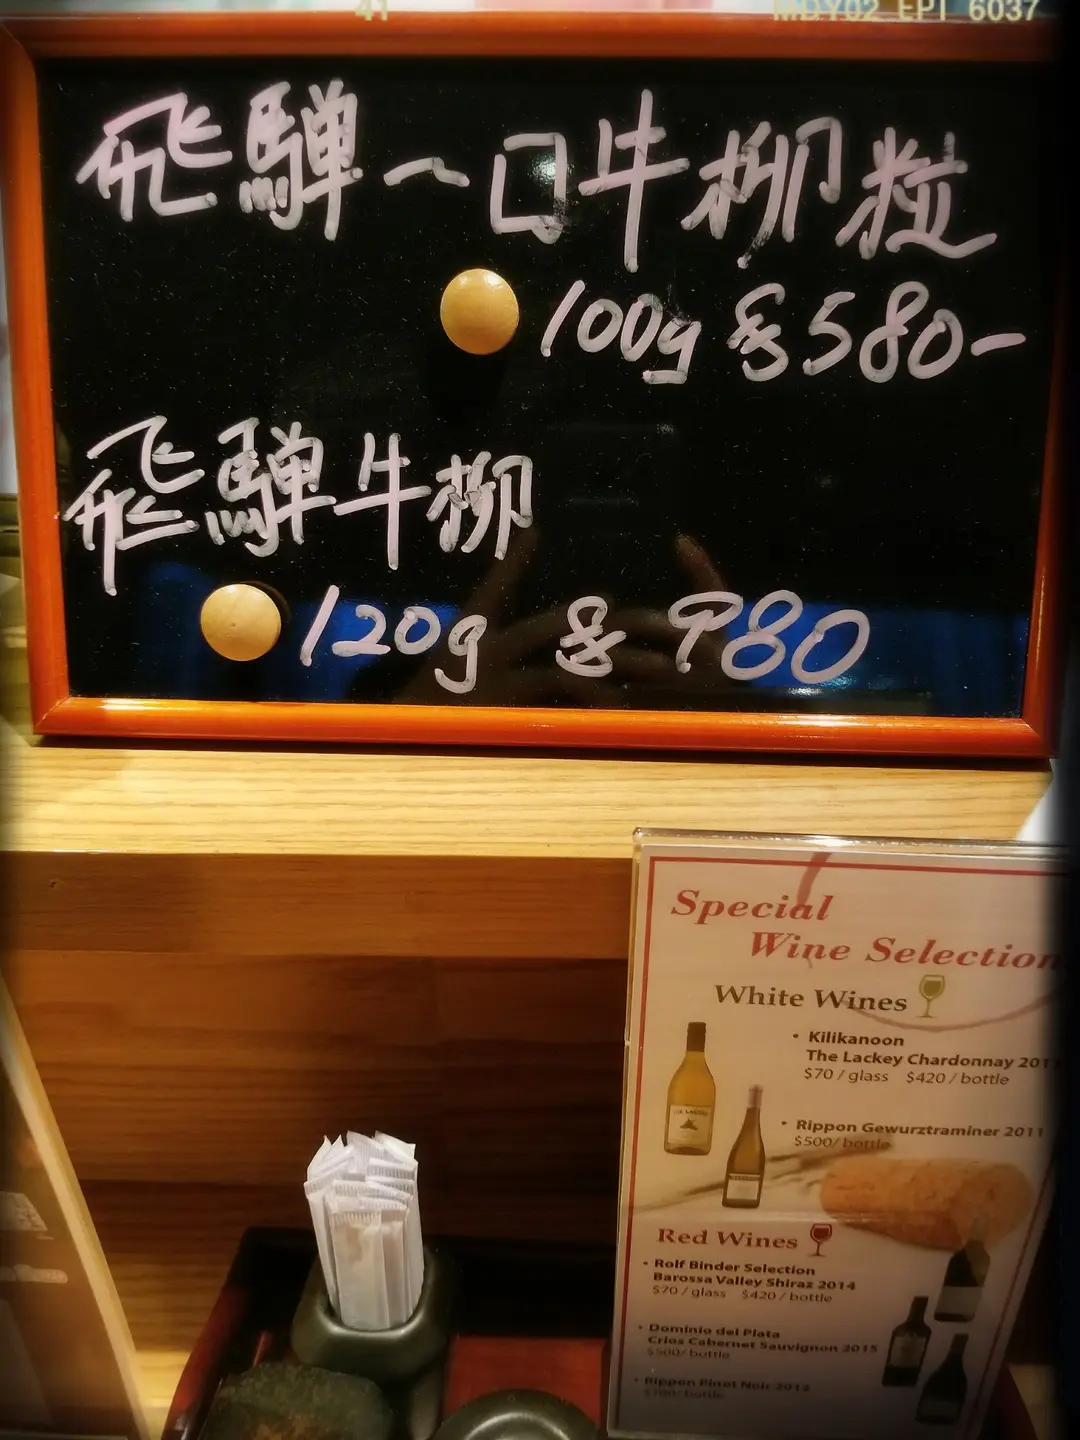 41
MDY02 EPT 6037
飛驒一口牛柳粒
100g $580-
飛驒牛柳
120g $980
Special
Wine Selection
White Wines
• Kilikanoon
The Lackey Chardonnay 201
$70 / glass $420 / bottle
• Rippon Gewurztraminer 2011
$500/ bottle
Red Wines
• Rolf Binder Selection
Barossa Valley Shiraz 2014
$70 / glass $420 / bottle
• Dominio del Plata
Crios Cabernet Sauvignon 2015
$500/ bottle
• Rippon Pinot Noir 2012
/bottle